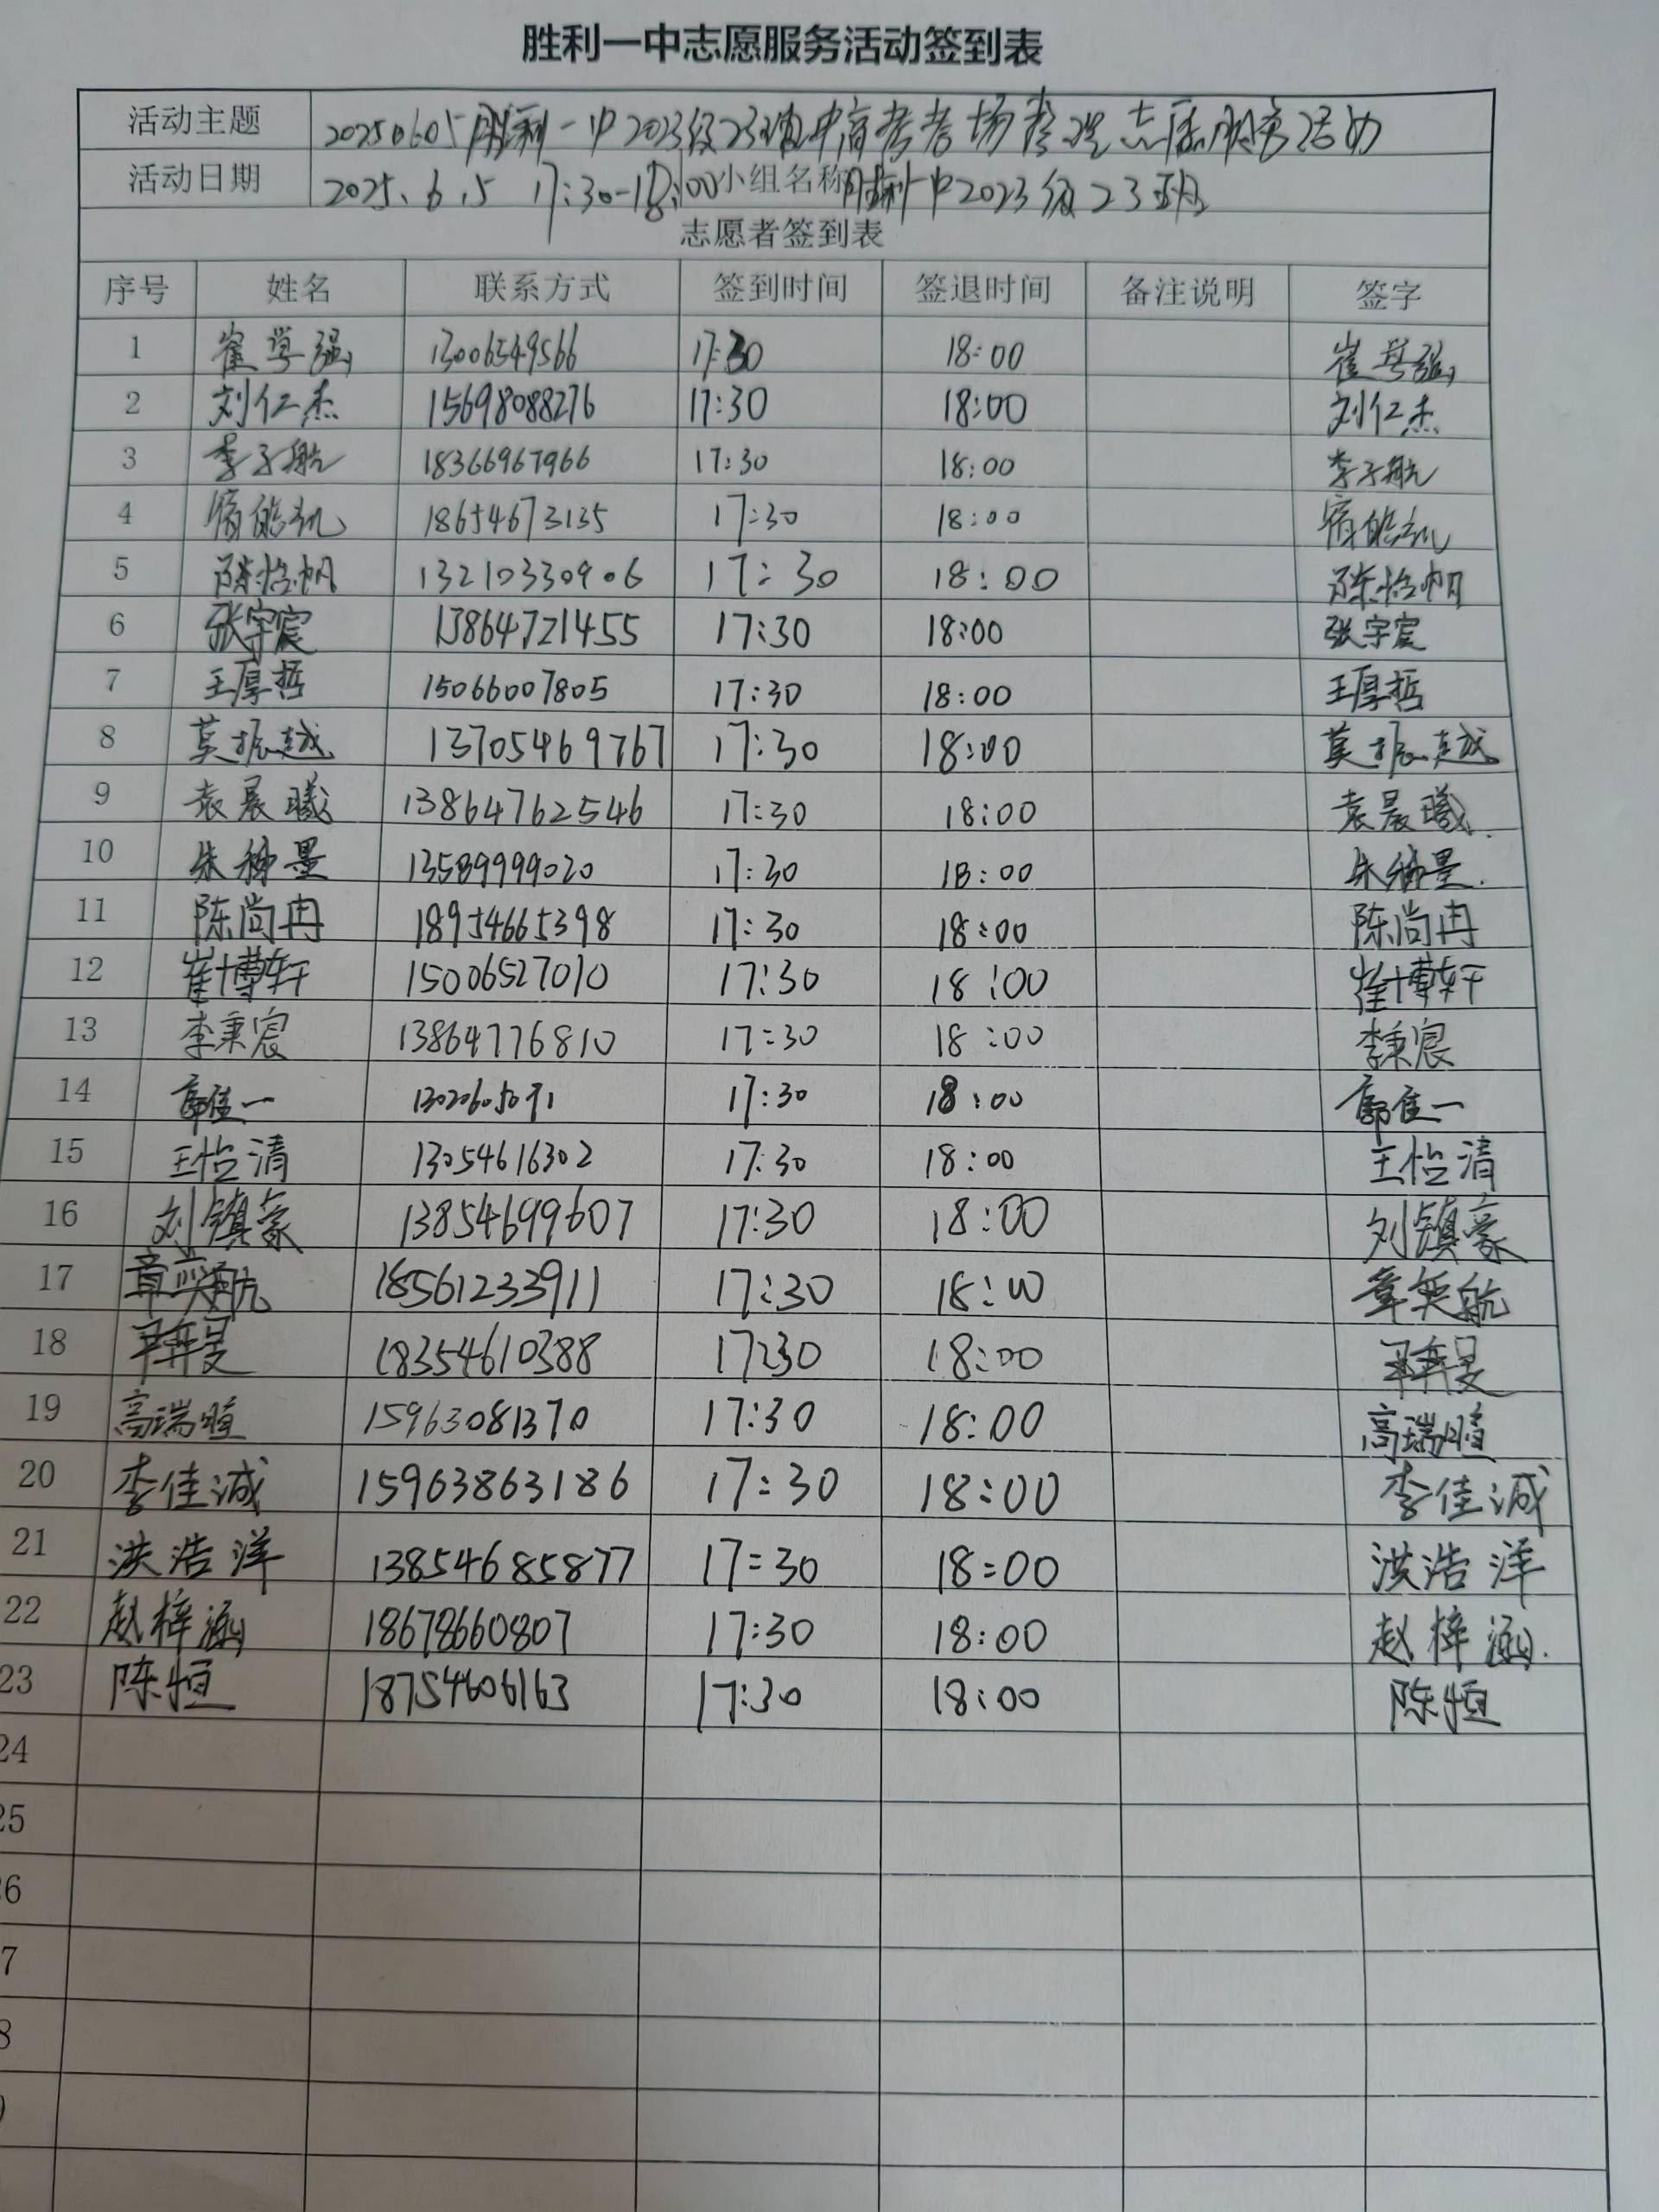 胜利一中志愿服务活动签到表
活动主题 20250605胜利一中2023级23班高考考场整理志愿服务活动
活动日期 2025.6.5 17:30-18:00 小组名称 胜利一中2023级23班
志愿者签到表
序号 姓名 联系方式 签到时间 签退时间 备注说明 签字
1 崔 13006549566 17:30 18:00 崔
2 刘仁杰 15698088276 17:30 18:00 刘仁杰
3 李子航 18366967966 17:30 18:00 李子航
4 18654673135 17:30 18:00
5 陈怡帆 13210330906 17:30 18:00 陈怡帆
6 张宇宸 13864721455 17:30 18:00 张宇宸
7 王厚哲 15066007805 17:30 18:00 王厚哲
8 莫振越 13705469767 17:30 18:00 莫振越
9 袁晨曦 13864762546 17:30 18:00 袁晨曦
10 朱 墨 13589999020 17:30 18:00 朱 墨
11 陈尚冉 18954665398 17:30 18:00 陈尚冉
12 崔博轩 15006527010 17:30 18:00 崔博轩
13 李秉宸 13864776810 17:30 18:00 李秉宸
14 17:30 18:00
15 王怡清 13054616302 17:30 18:00 王怡清
16 刘镇豪 13854699607 17:30 18:00 刘镇豪
17 章奕航 18561233911 17:30 18:00 章奕航
18 18354610388 17:30 18:00
19 高瑞暄 15963081370 17:30 18:00 高瑞暄
20 李佳诚 15963863186 17:30 18:00 李佳诚
21 洪浩洋 13854685877 17:30 18:00 洪浩洋
22 赵梓涵 18678660807 17:30 18:00 赵梓涵
23 陈恒 18754606163 17:30 18:00 陈恒
24
25
26
7
8